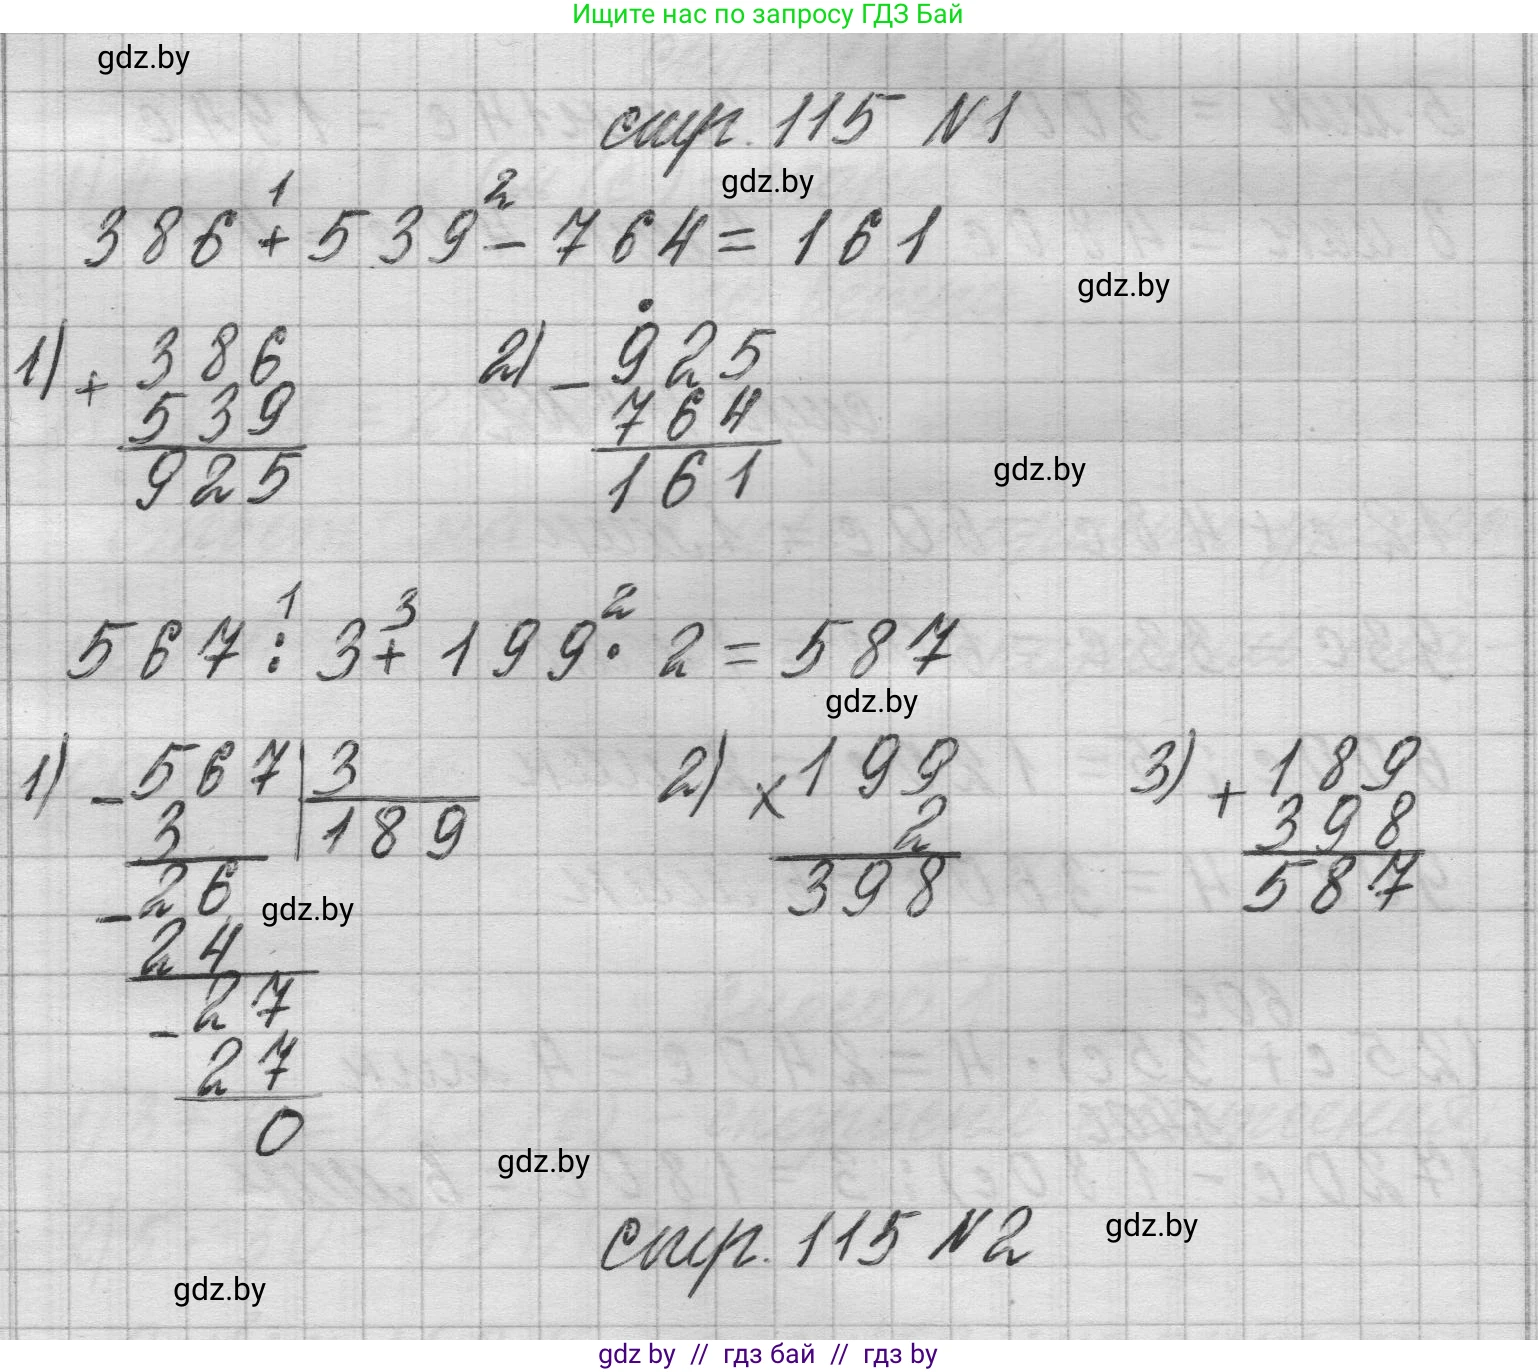 Ищите нас по запросу ГДЗ Бай
gdz.by
стр. 115 N1
gdz.by
1 2
386 + 539 - 764 = 161
gdz.by
1) + 386
539
925
2) - 925
764
161
gdz.by
1 3 2
567 : 3 + 199 · 2 = 587
gdz.by
1) - 567 | 3
3 189
- 26
gdz.by
24
- 27
27
0
2) × 199
2
398
3) + 189
398
587
gdz.by
стр. 115 N2
gdz.by
gdz.by
gdz by // гдз бай // гдз by